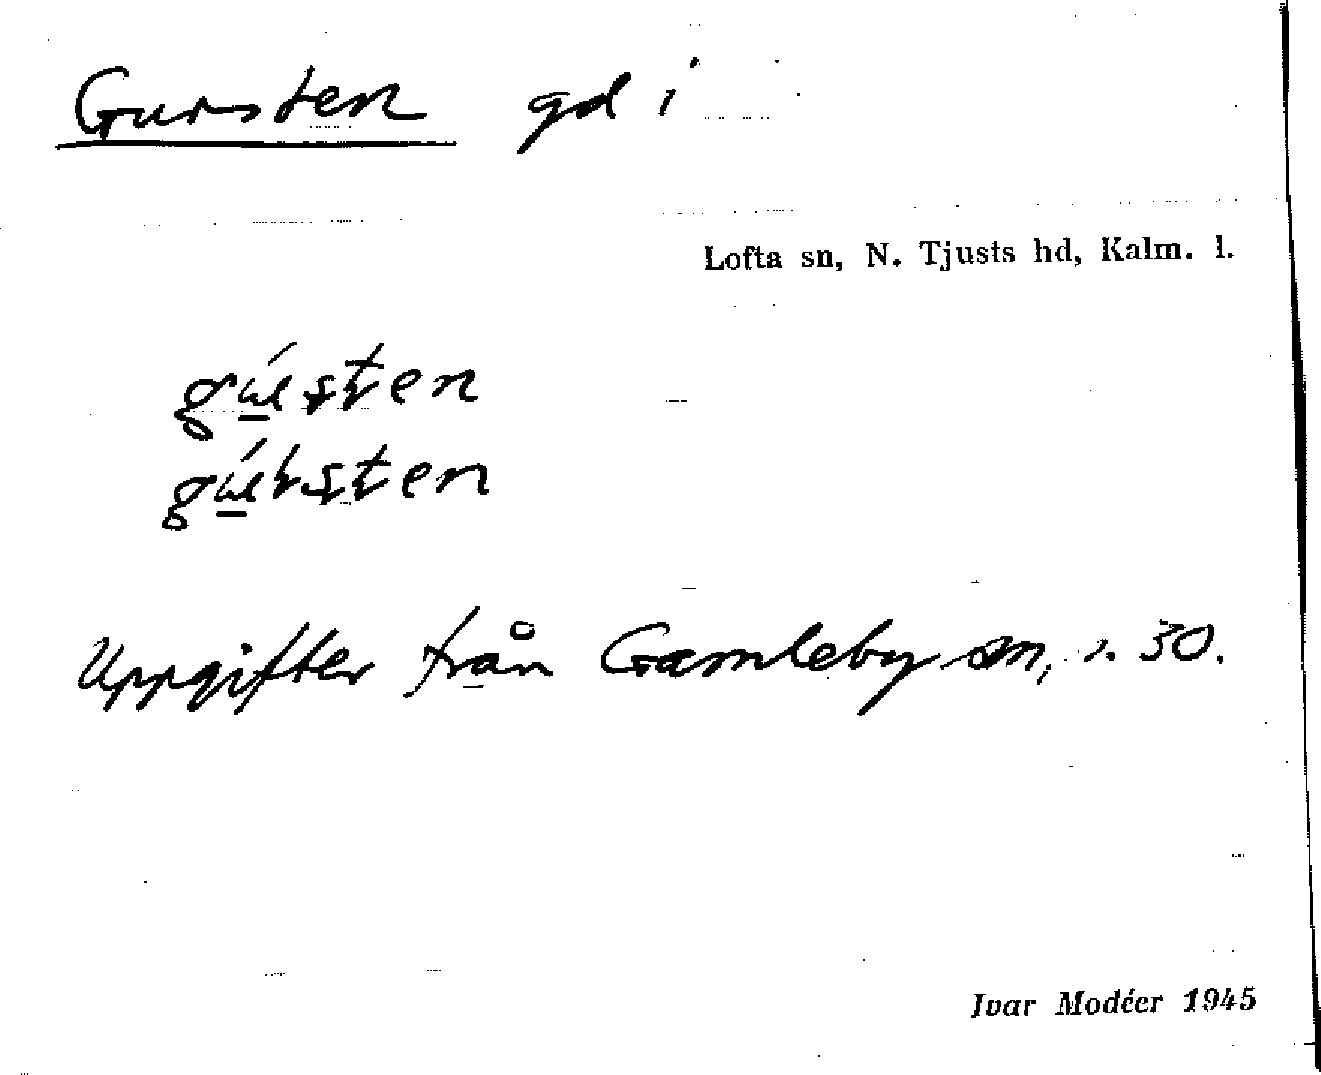 Gursten gd i
Lofta sn, N. Tjusts hd, Kalm. l.
Uppgifter från Gamleby sn, s. 30.
Ivar Modéer 1945